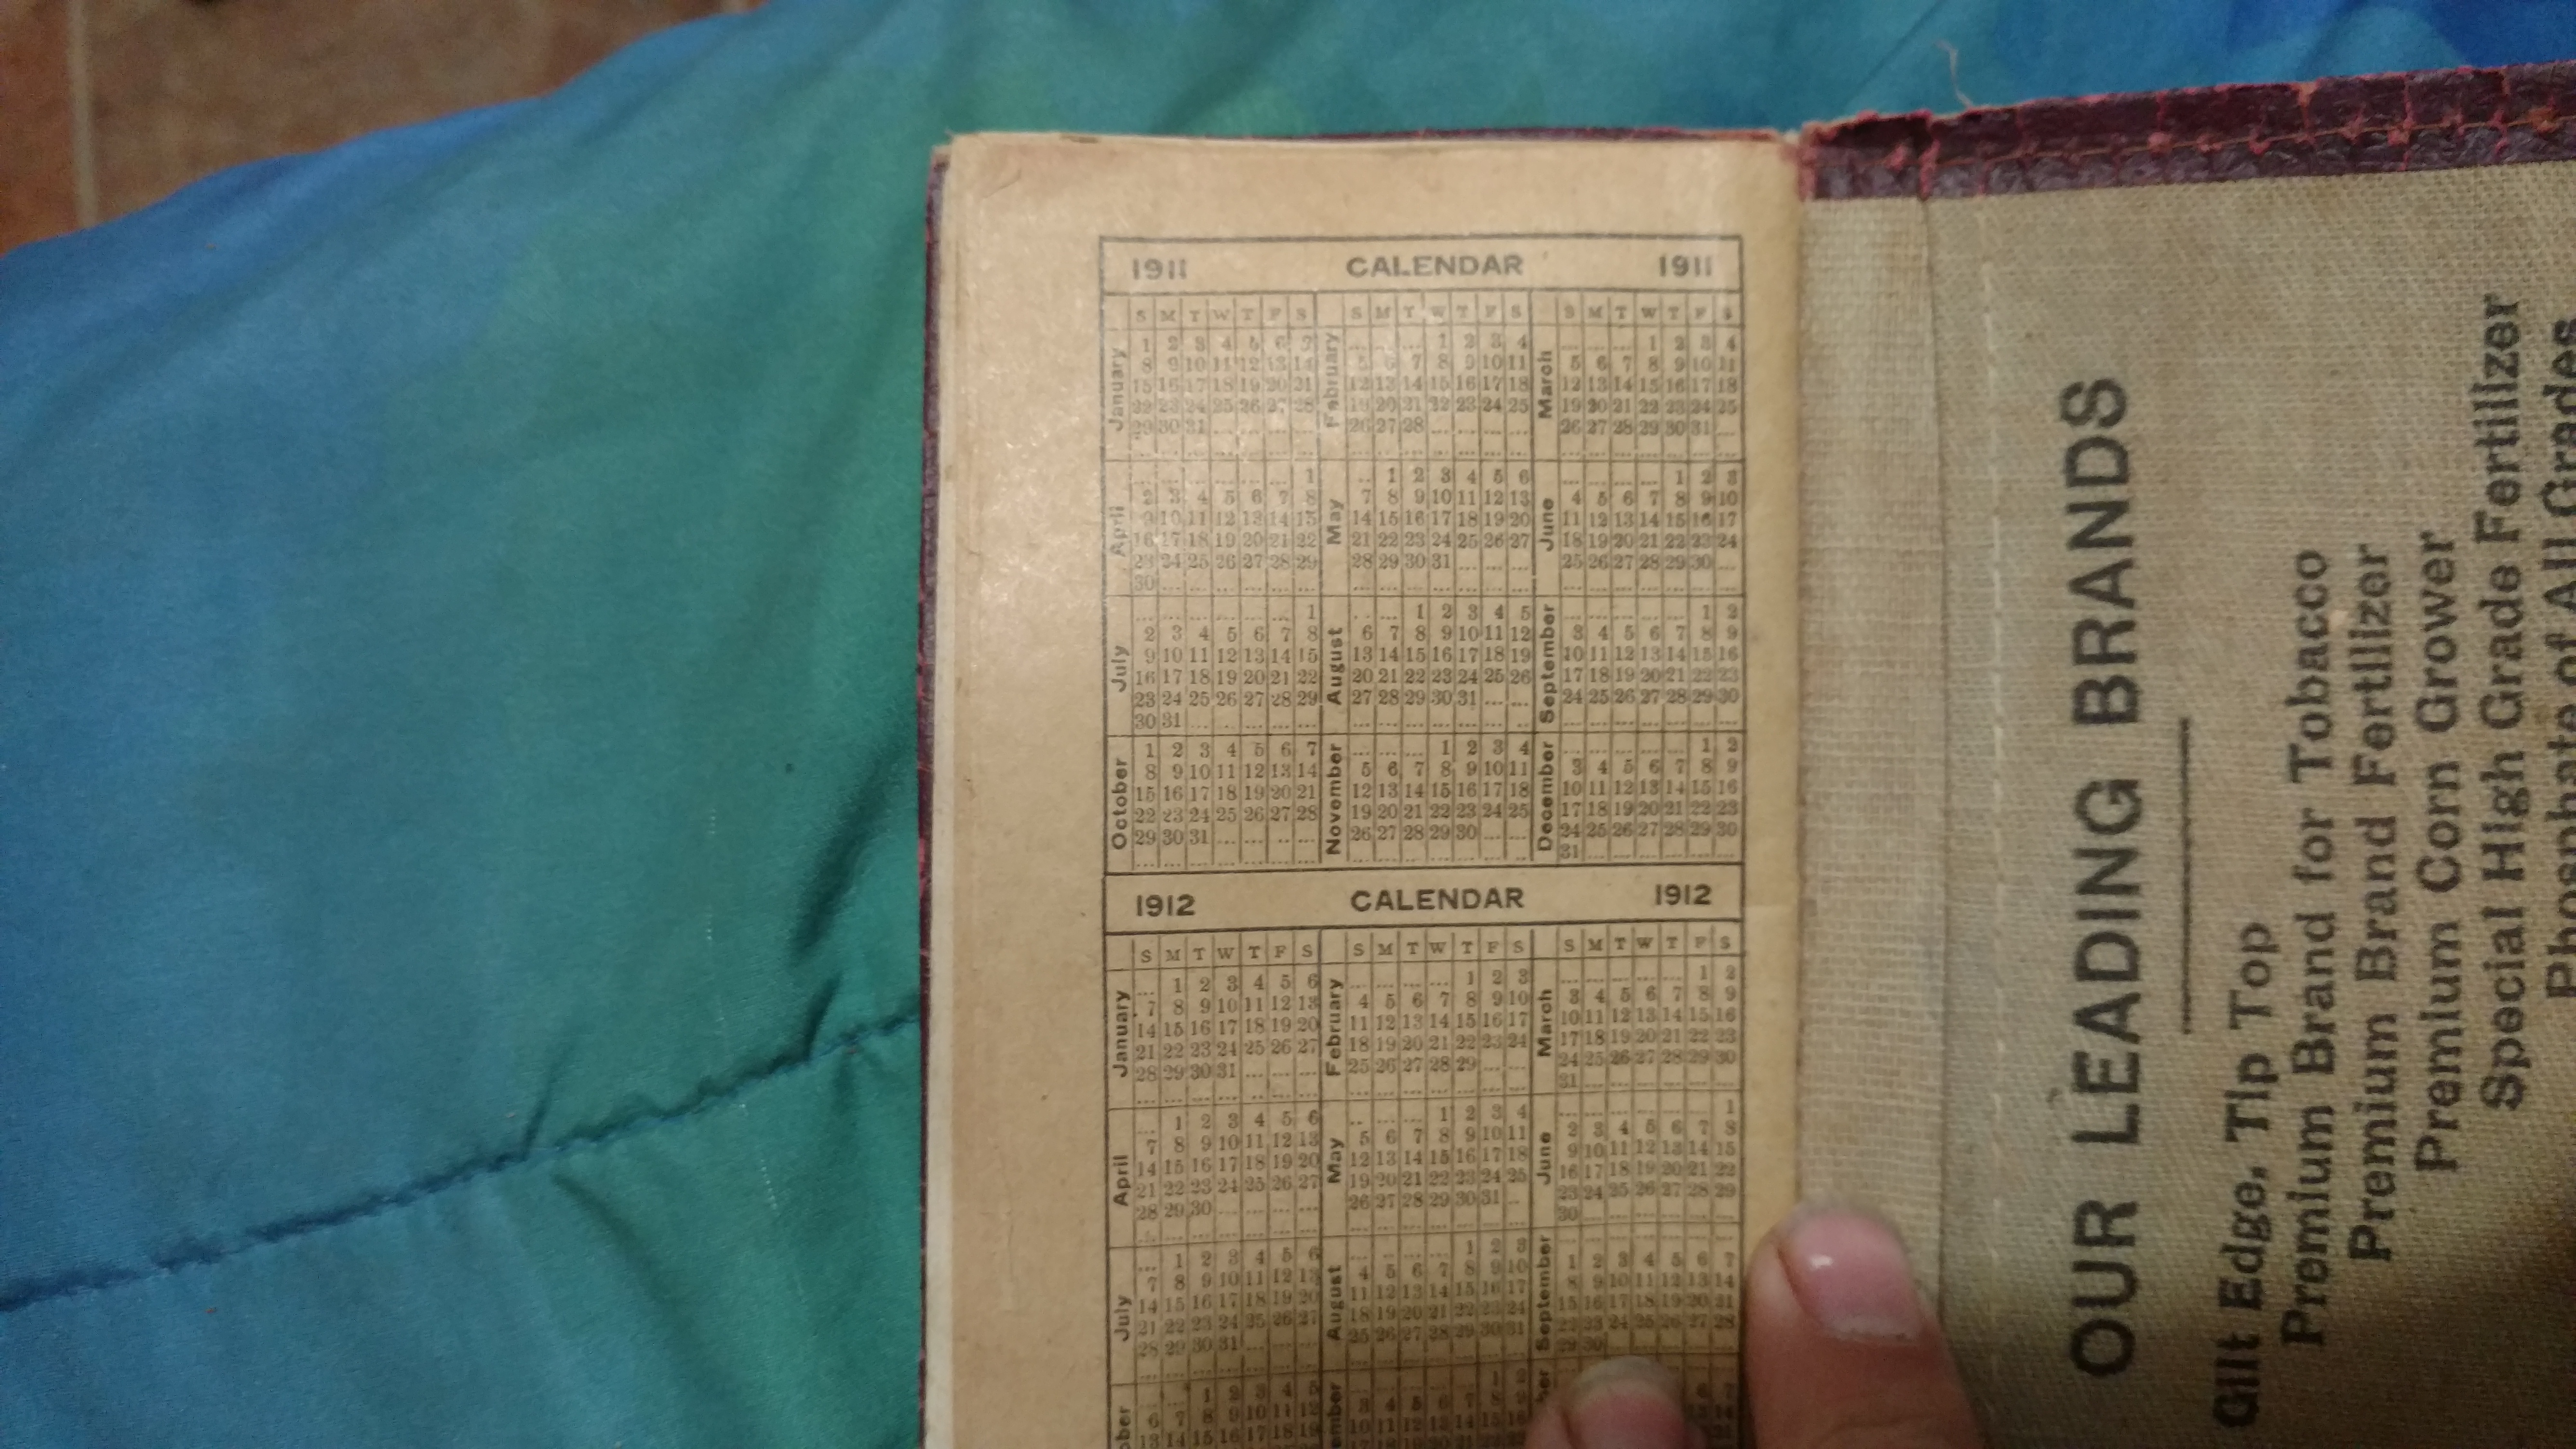 1911 CALENDAR 1911
S M T W T F S S M T W T F S S M T W T F S
January
1 2 3 4 5 6 7
8 9 10 11 12 13 14
15 16 17 18 19 20 21
22 23 24 25 26 27 28
29 30 31 ... ... ... ...
February
... ... ... 1 2 3 4
5 6 7 8 9 10 11
12 13 14 15 16 17 18
19 20 21 22 23 24 25
26 27 28 ... ... ... ...
March
... ... ... 1 2 3 4
5 6 7 8 9 10 11
12 13 14 15 16 17 18
19 20 21 22 23 24 25
26 27 28 29 30 31 ...
April
... ... ... ... ... ... 1
2 3 4 5 6 7 8
9 10 11 12 13 14 15
16 17 18 19 20 21 22
23 24 25 26 27 28 29
30 ... ... ... ... ... ...
May
... 1 2 3 4 5 6
7 8 9 10 11 12 13
14 15 16 17 18 19 20
21 22 23 24 25 26 27
28 29 30 31 ... ... ...
June
... ... ... ... 1 2 3
4 5 6 7 8 9 10
11 12 13 14 15 16 17
18 19 20 21 22 23 24
25 26 27 28 29 30 ...
July
... ... ... ... ... ... 1
2 3 4 5 6 7 8
9 10 11 12 13 14 15
16 17 18 19 20 21 22
23 24 25 26 27 28 29
30 31 ... ... ... ... ...
August
... ... 1 2 3 4 5
6 7 8 9 10 11 12
13 14 15 16 17 18 19
20 21 22 23 24 25 26
27 28 29 30 31 ... ...
September
... ... ... ... ... 1 2
3 4 5 6 7 8 9
10 11 12 13 14 15 16
17 18 19 20 21 22 23
24 25 26 27 28 29 30
October
1 2 3 4 5 6 7
8 9 10 11 12 13 14
15 16 17 18 19 20 21
22 23 24 25 26 27 28
29 30 31 ... ... ... ...
November
... ... ... 1 2 3 4
5 6 7 8 9 10 11
12 13 14 15 16 17 18
19 20 21 22 23 24 25
26 27 28 29 30 ... ...
December
... ... ... ... ... 1 2
3 4 5 6 7 8 9
10 11 12 13 14 15 16
17 18 19 20 21 22 23
24 25 26 27 28 29 30
31 ... ... ... ... ... ...
1912 CALENDAR 1912
S M T W T F S S M T W T F S S M T W T F S
January
... 1 2 3 4 5 6
7 8 9 10 11 12 13
14 15 16 17 18 19 20
21 22 23 24 25 26 27
28 29 30 31 ... ... ...
February
... ... ... ... 1 2 3
4 5 6 7 8 9 10
11 12 13 14 15 16 17
18 19 20 21 22 23 24
25 26 27 28 29 ... ...
March
... ... ... ... ... 1 2
3 4 5 6 7 8 9
10 11 12 13 14 15 16
17 18 19 20 21 22 23
24 25 26 27 28 29 30
31 ... ... ... ... ... ...
April
... 1 2 3 4 5 6
7 8 9 10 11 12 13
14 15 16 17 18 19 20
21 22 23 24 25 26 27
28 29 30 ... ... ... ...
May
... ... ... 1 2 3 4
5 6 7 8 9 10 11
12 13 14 15 16 17 18
19 20 21 22 23 24 25
26 27 28 29 30 31 ...
June
... ... ... ... ... ... 1
2 3 4 5 6 7 8
9 10 11 12 13 14 15
16 17 18 19 20 21 22
23 24 25 26 27 28 29
30 ... ... ... ... ... ...
July
... 1 2 3 4 5 6
7 8 9 10 11 12 13
14 15 16 17 18 19 20
21 22 23 24 25 26 27
28 29 30 31 ... ... ...
August
... ... ... ... 1 2 3
4 5 6 7 8 9 10
11 12 13 14 15 16 17
18 19 20 21 22 23 24
25 26 27 28 29 30 31
September
1 2 3 4 5 6 7
8 9 10 11 12 13 14
15 16 17 18 19 20 21
22 23 24 25 26 27 28
29 30 ... ... ... ... ...
... ... 1 2 3 4 5
6 7 8 9 10 11 12
OUR LEADING BRANDS
Gilt Edge, Tip Top
Premium Brand for Tobacco
Premium Brand Fertilizer
Premium Corn Grower
Special High Grade Fertilizer
Phosphate of All Grades